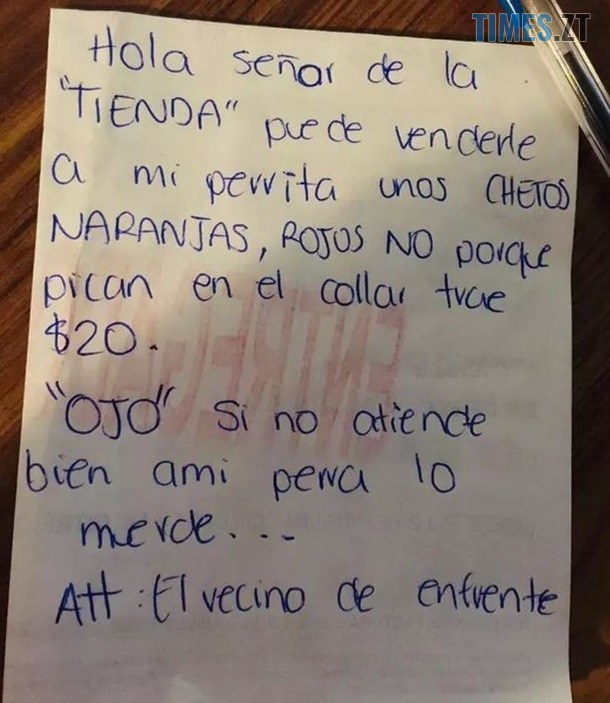 TIMES.ZT
Hola señor de la
"TIENDA" puede venderle
a mi perrita unos CHETOS
NARANJAS, ROJOS NO porque
pican en el collar trae
$20.
"OJO" Si no atiende
bien ami perra lo
merde...
Att: El vecino de enfrente
ENTREGADO